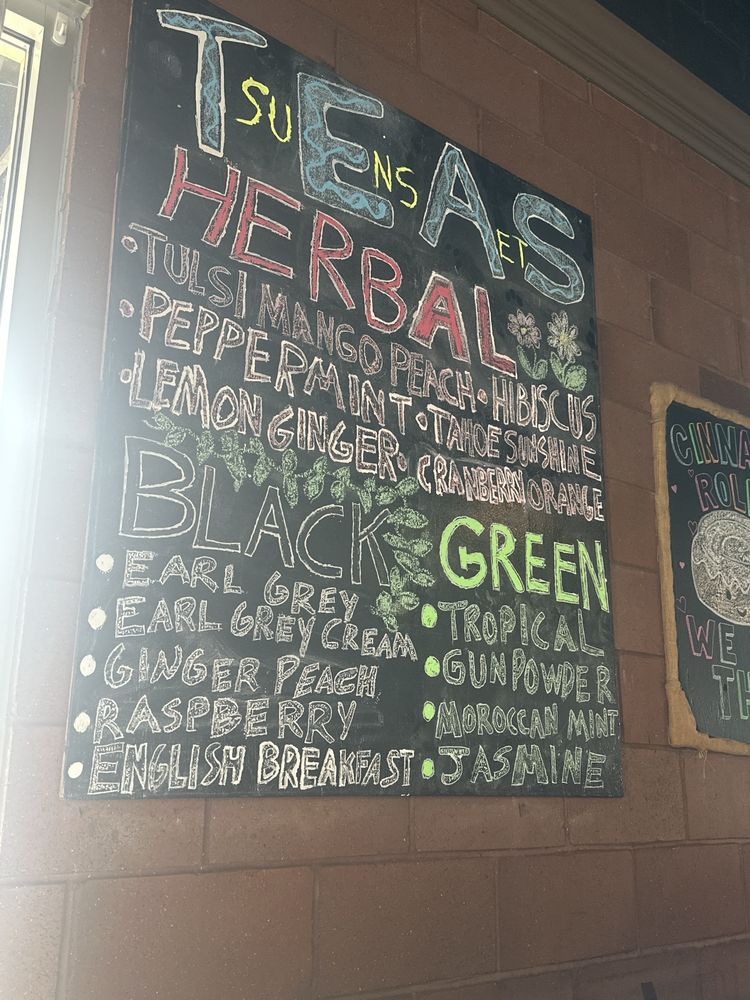 TEAS
SUNSET
HERBAL
• TULSI MANGO PEACH • HIBISCUS
• PEPPERMINT • TAHOE SUNSHINE
• LEMON GINGER • CRANBERRY ORANGE
BLACK
• EARL GREY
• EARL GREY CREAM
• GINGER PEACH
• RASPBERRY
• ENGLISH BREAKFAST
GREEN
• TROPICAL
• GUNPOWDER
• MOROCCAN MINT
• JASMINE
WE